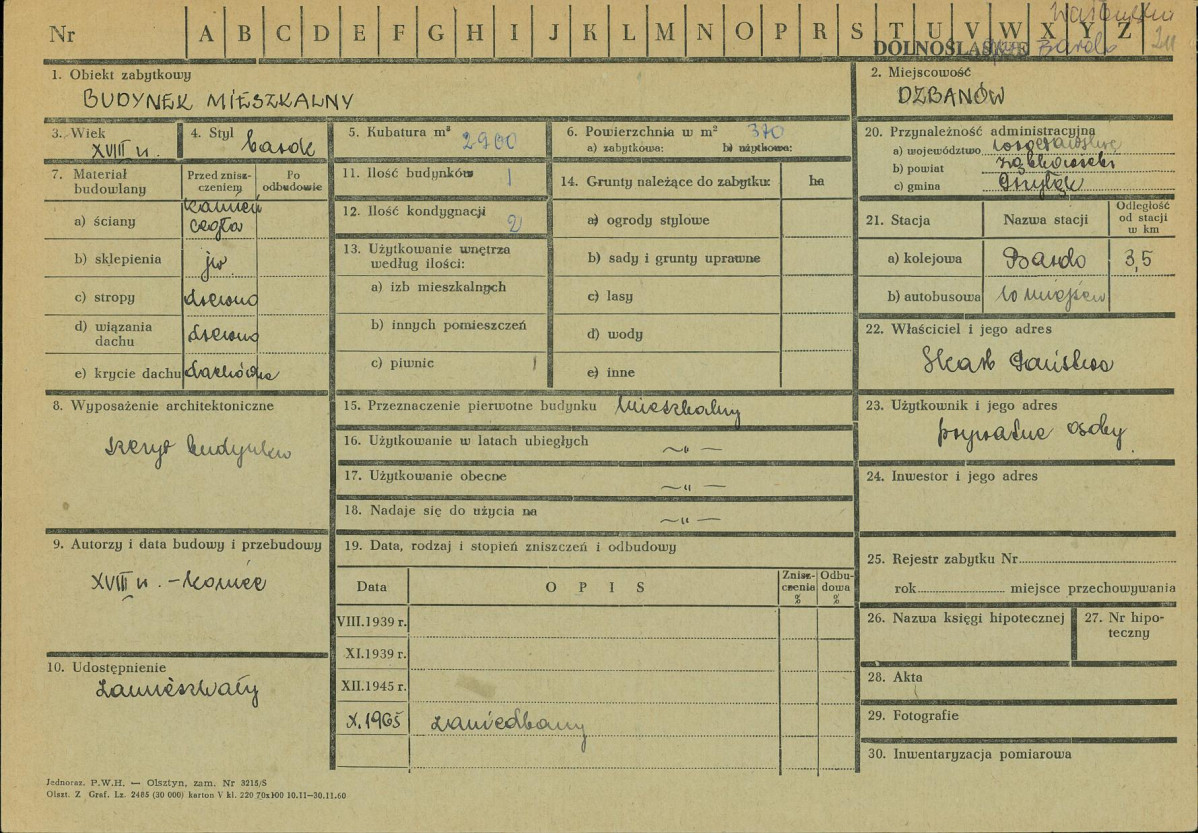 Nr A B C D E F G H I J K L M N O P R S T U V W X Y Z
DOLNOŚLĄSKIE Bardo
1. Obiekt zabytkowy
BUDYNEK MIESZKALNY
2. Miejscowość
DZBANÓW
3. Wiek
XVIII w.
4. Styl barok
5. Kubatura m³ 2900
6. Powierzchnia w m² 370
a) zabytkowa: b) użytkowa:
20. Przynależność administracyjna
a) województwo
b) powiat ząbkowicki
c) gmina
7. Materiał budowlany
Przed zniszczeniem
Po odbudowie
a) ściany kamień cegła
b) sklepienia jw
c) stropy drewno
d) wiązania dachu drewno
e) krycie dachu dachówka
11. Ilość budynków 1
12. Ilość kondygnacji 2
13. Użytkowanie wnętrza
według ilości:
a) izb mieszkalnych
b) innych pomieszczeń
c) piwnic 1
14. Grunty należące do zabytku: ha
a) ogrody stylowe
b) sady i grunty uprawne
c) lasy
d) wody
e) inne
21. Stacja Nazwa stacji Odległość od stacji w km
a) kolejowa Bardo 3,5
b) autobusowa w miejscu
22. Właściciel i jego adres
Skarb Państwa
8. Wyposażenie architektoniczne
szczyt budynku
15. Przeznaczenie pierwotne budynku mieszkalny
16. Użytkowanie w latach ubiegłych ~ „ —
17. Użytkowanie obecne ~ „ —
18. Nadaje się do użycia na ~ „ —
23. Użytkownik i jego adres
prywatne osoby
24. Inwestor i jego adres
9. Autorzy i data budowy i przebudowy
XVIII w. – koniec
19. Data, rodzaj i stopień zniszczeń i odbudowy
Data OPIS Zniszczenia % Odbudowa %
VIII.1939 r.
XI.1939 r.
XII.1945 r.
X.1965 zaniedbany
25. Rejestr zabytku Nr
rok miejsce przechowywania
26. Nazwa księgi hipotecznej
27. Nr hipoteczny
10. Udostępnienie
zamieszkały
28. Akta
29. Fotografie
30. Inwentaryzacja pomiarowa
Jednoraz. P.W.H. — Olsztyn, zam. Nr 3215/S
Olszt. Z. Graf. Lz. 2485 (30 000) karton V kl. 220 70x100 10.11—30.11.60